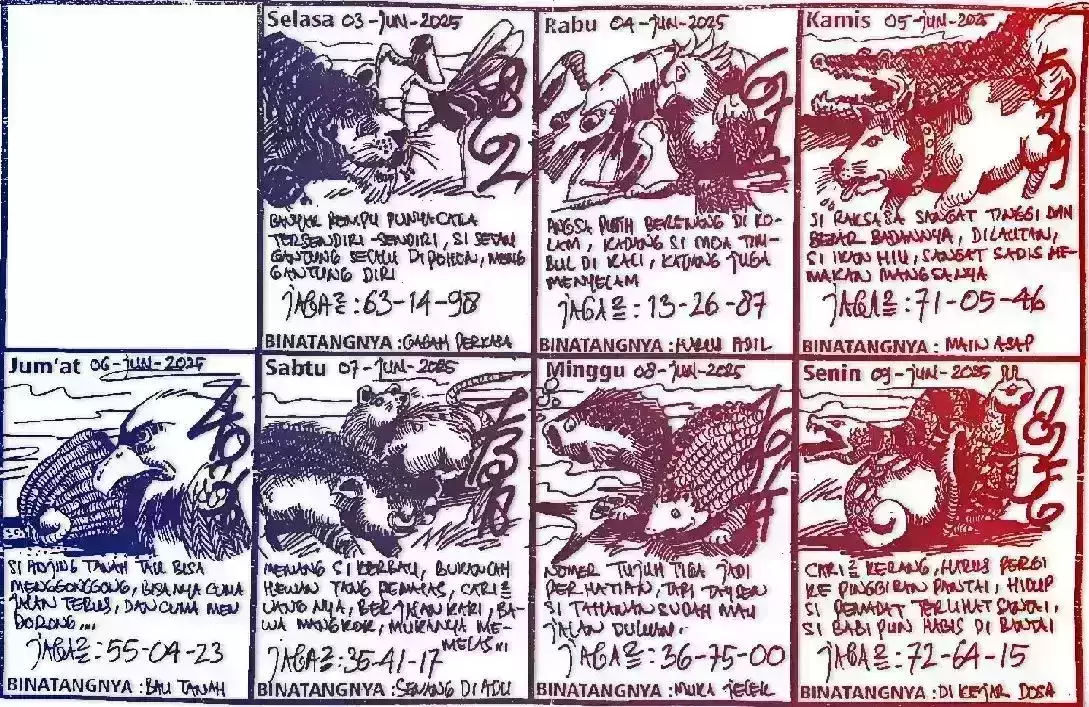 Selasa 03-JUN-2025
BANYAK POMPU PUNYA CARA
TERSENDIRI-SENDIRI, SI SETAN
GANTUNG SECALU DI POHON, MENG
GANTUNG DIRI
JAGA2 : 63-14-98
BINATANGNYA : GAGAH PERKASA
Rabu 04-JUN-2025
ANGSA PUTIH BERENANG DI KO-
LAM, KADANG SI MDA TIM-
BUL DI KALI, KADANG JUGA
MENYELAM
JAGA2 : 13-26-87
BINATANGNYA : HARUS ADIL
Kamis 05-JUN-2025
SI RAKSASA SANGAT TINGGI DAN
BESAR BADANNYA, DILAUTAN,
SI IKAN HIU, SANGAT SADIS ME-
MAKAN MANGSANYA
JAGA2 : 71-05-46
BINATANGNYA : MAIN ASAP
Jum'at 06-JUN-2025
SI ANJING TANAH TAK BISA
MENGGONGGONG, BISANYA CUMA
JALAN TERUS, DAN CUMA MEN
DORONG...
JAGA2 : 55-04-23
BINATANGNYA : BAU TANAH
Sabtu 07-JUN-2025
MENANG SI KERBAU, BUKANLAH
HEWAN YANG PEMALAS, CARI2
UANG NYA, BERJALAN KAKI, BA-
WA MANGKOK, MUKANYA ME-
MELAS...
JAGA2 : 35-41-17
BINATANGNYA : SENANG DI ADU
Minggu 08-JUN-2025
NOMER TUJUH TIGA JADI
PERHATIAN, TAPI
SI TAHANAN SUDAH MAU
JALAN DULUAN.
JAGA2 : 36-75-00
BINATANGNYA : MUKA JELEK
Senin 09-JUN-2025
CARI2 KERANG, HARUS PERGI
KE PINGGIRAN PANTAI, HIDUP
SI PEMADAT TERLIHAT SANTAI,
SI BABI PUN HABIS DI BANTAI
JAGA2 : 72-64-15
BINATANGNYA : DI KEJAR DOSA